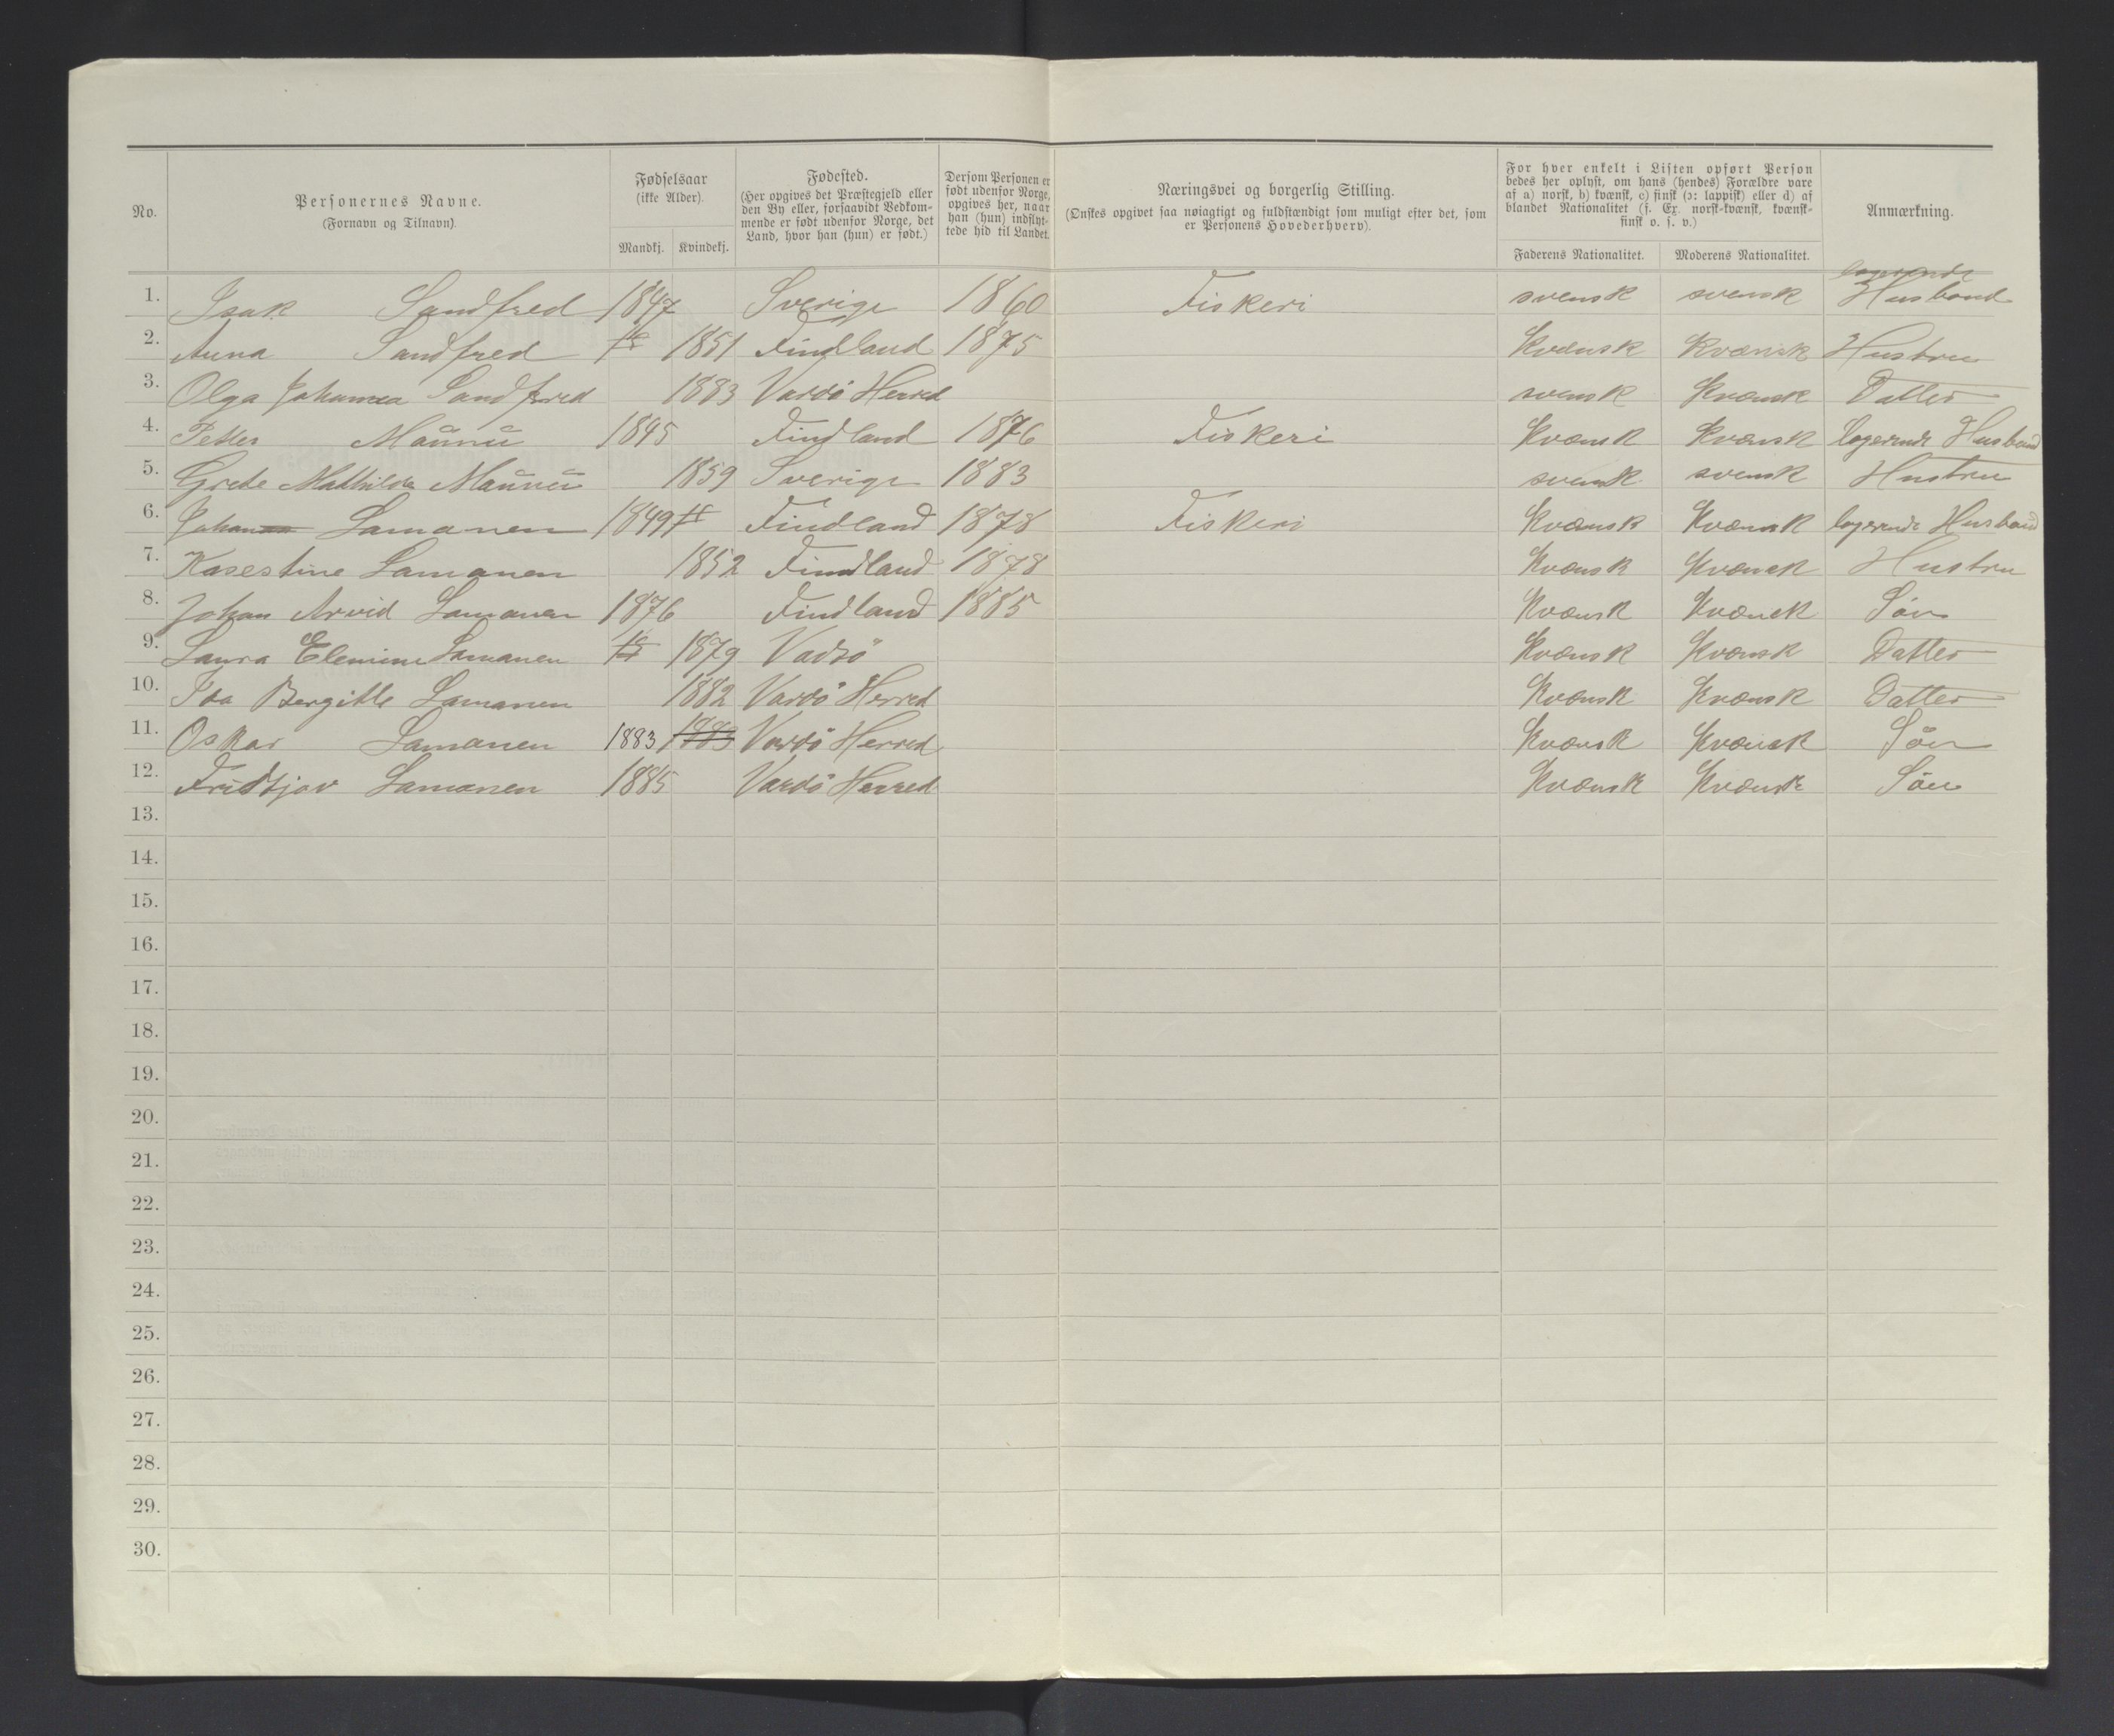 No.
Personernes Navne.
(Fornavn og Tilnavn).
Fødselsaar
(ikke Alder).
Mandkj. Kvindekj.
Fødested.
(Her opgives det Præstegjeld eller
den By eller, forsaavidt Vedkom-
mende er født udenfor Norge, det
Land, hvor han (hun) er født.)
Dersom Personen er
født udenfor Norge,
opgives her, naar
han (hun) indflyt-
tede hid til Landet.
Næringsvei og borgerlig Stilling.
(Ønskes opgivet saa nøiagtigt og fuldstændigt som muligt efter det, som
er Personens Hovederhverv).
For hver enkelt i Listen opført Person
bedes her oplyst, om hans (hendes) Forældre vare
af a) norsk, b) kvænsk, c) finsk (ɔ: lappisk) eller d) af
blandet Nationalitet (s. Ex. norsk-kvænsk, kvænsk-
finsk o. s. v.)
Faderens Nationalitet. Moderens Nationalitet.
Anmærkning.
logerende
1. Isak Sandfred 1847 Sverige 1860 Fiskeri svensk svensk Husbond
2. Anna Sandfred 1851 Findland 1875 Kvænsk Kvænsk Hustru
3. Olga Johanna Sandfred 1883 Vardö Herred svensk Kvænsk Datter
4. Petter Maūnū 1845 Findland 1876 Fiskeri Kvænsk Kvænsk logerende Husbond
5. Grete Mathilde Maūnū 1859 Sverige 1883 svensk svensk Hustru
6. Johan Lamanen 1849 Findland 1878 Fiskeri Kvænsk Kvænsk logerende Husbond
7. Kasestine Lamanen 1852 Findland 1878 Kvænsk Kvænsk Hustru
8. Johan Arvid Lamanen 1876 Findland 1885 Kvænsk Kvænsk Sön
9. Laura Elemine Lamanen 1879 Vadsö Kvænsk Kvænsk Datter
10. Ida Bergitte Lamanen 1882 Vardö Herred Kvænsk Kvænsk Datter
11. Oskar Lamanen 1883 1883 Vardö Herred Kvænsk Kvænsk Sön
12. Fridtjov Lamanen 1885 Vardö Herred Kvænsk Kvænsk Sön
13.
14.
15.
16.
17.
18.
19.
20.
21.
22.
23.
24.
25.
26.
27.
28.
29.
30.